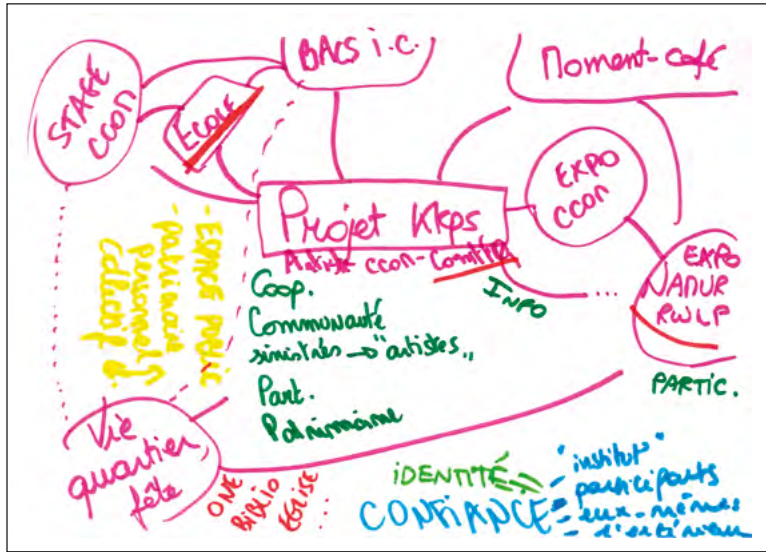 BACS i.c.
Moment-café
STAGE
CCON
ECOLE
EXPO
CCON
Projet Kkps
Artiste-CCON-Comité
INFO
...
EXPO
NAMUR
RWLP
PARTIC.
- ESPACE PUBLIC
- Patrimoine
Personnel
Collectif
Coop.
Communauté
sinistrés → "artistes"
Part.
Patrimoine
Vie
quartier,
fête
ONE
BIBLIO
EGLISE
...
IDENTITÉ
CONFIANCE
- "institut"
- participants
- eux-mêmes
- l'extérieur